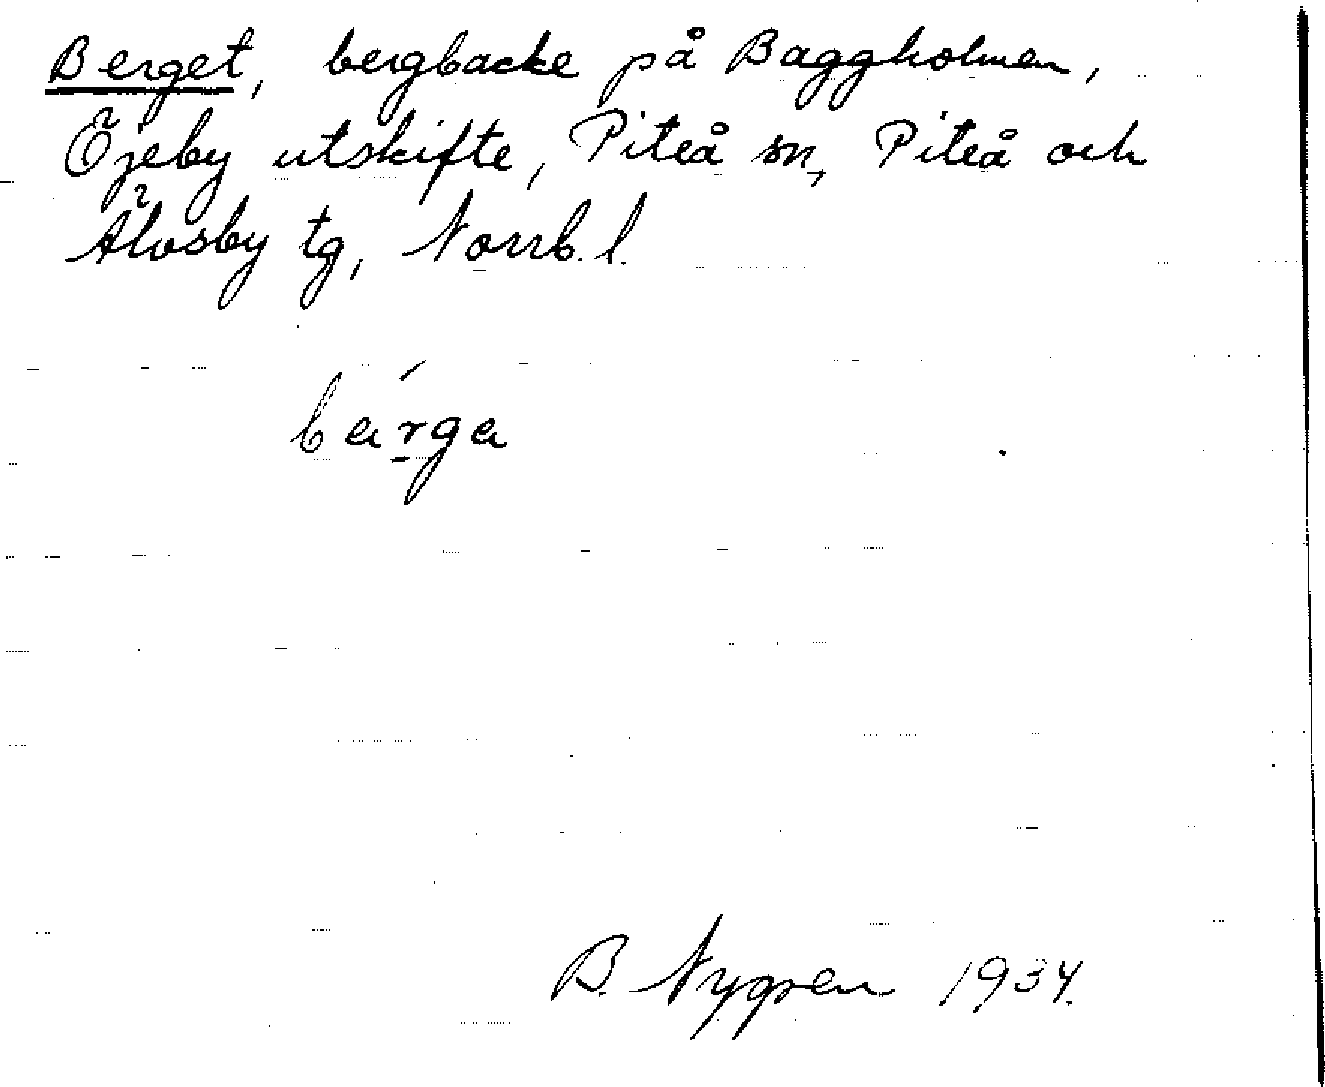 Berget, bergbacke på Baggholmen,
Öjeby utskifte, Piteå sn, Piteå och
Älvsby tg, Norrb. l.
bárga
B. Nygren 1934.